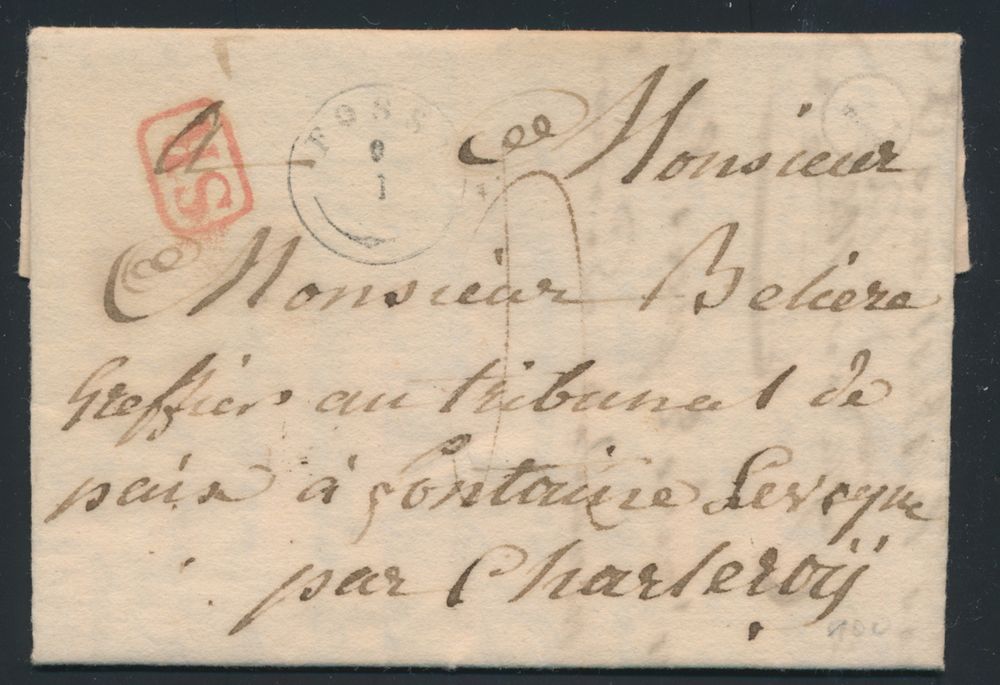 SR
FOSS
9
1
a Monsieur
Monsieur Beliere
Greffier au tribunal de
paix à fontaine Levêque
par Charleroÿ